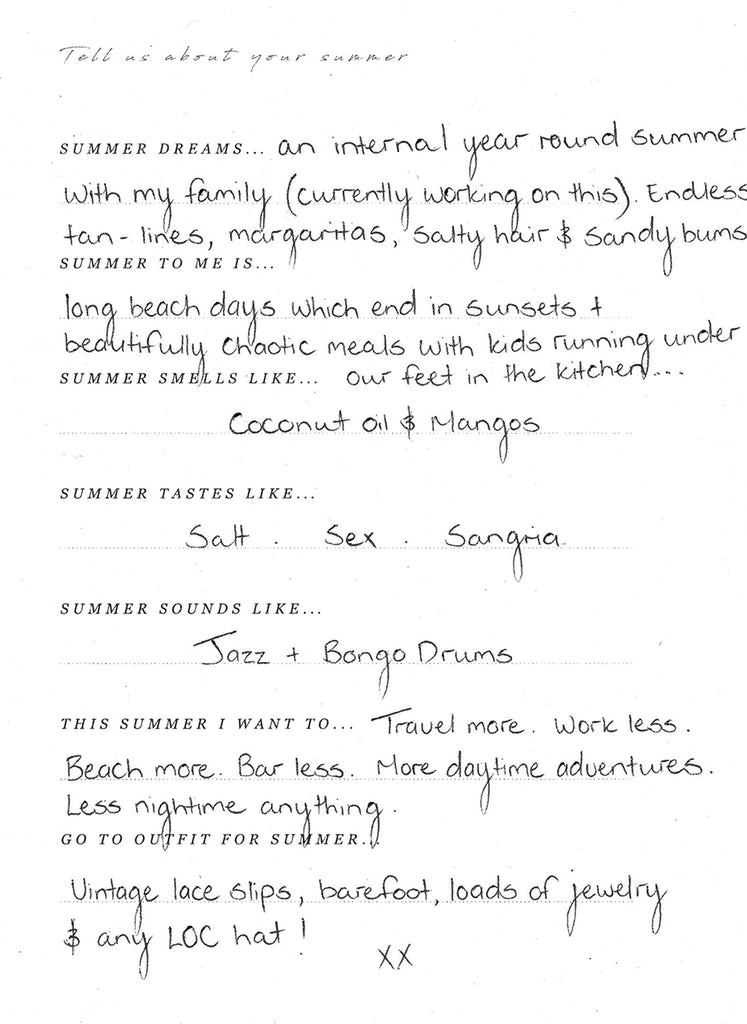 Tell us about your summer
SUMMER DREAMS... an internal year round summer
with my family (currently working on this). Endless
tan-lines, margaritas, salty hair & sandy bums
SUMMER TO ME IS...
long beach days which end in sunsets +
beautifully chaotic meals with kids running under
our feet in the kitchen...
SUMMER SMELLS LIKE...
Coconut oil & Mangos
SUMMER TASTES LIKE...
Salt . Sex . Sangria
SUMMER SOUNDS LIKE...
Jazz + Bongo Drums
THIS SUMMER I WANT TO... Travel more. Work less.
Beach more. Bar less. More daytime adventures.
Less nightime anything.
GO TO OUTFIT FOR SUMMER...
Vintage lace slips, barefoot, loads of jewelry
& any LOC hat!
XX